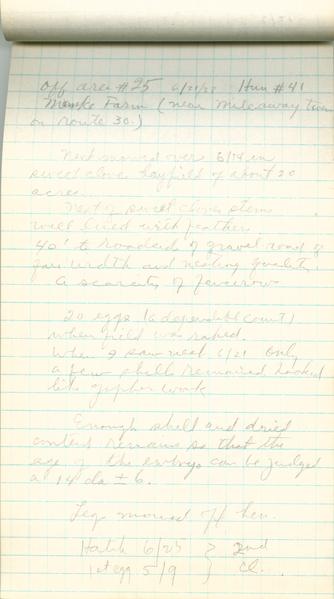 off area #25 6/21/    Hun #41
Farm (near Mileaway
on route 30.)
Nest mowed over 6/14 in
sweet clover hayfield of about 20
acres.
Nest of sweet clover stems
well lined with feathers.
40' to roadside of gravel road of
fair width and nesting quality.
a scarcity of fencerows
20 eggs (a dependable count)
when field was raked.
When I saw nest 6/21 only
a few shells remained looked
like gopher work
Enough shell and dried
content remains so that the
age of the embryo can be judged
a 14 da ± 6.
Legs mowed off hen.
Hatch 6/25 } 2nd
1st egg 5/9 } Cl.